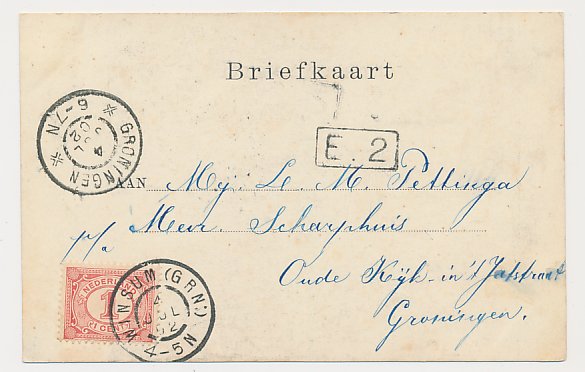 Briefkaart
GRONINGEN
6-7N
4
JUL
02
E. 2
AAN Mej. L. M. Pettinga
p/a Mevr. Scharphuis
Oude Kijk-in 't Jatstraat
Groningen.
NEDERLAND
1
CENT
WINSUM (GRN)
4
JUL
02
4-5N